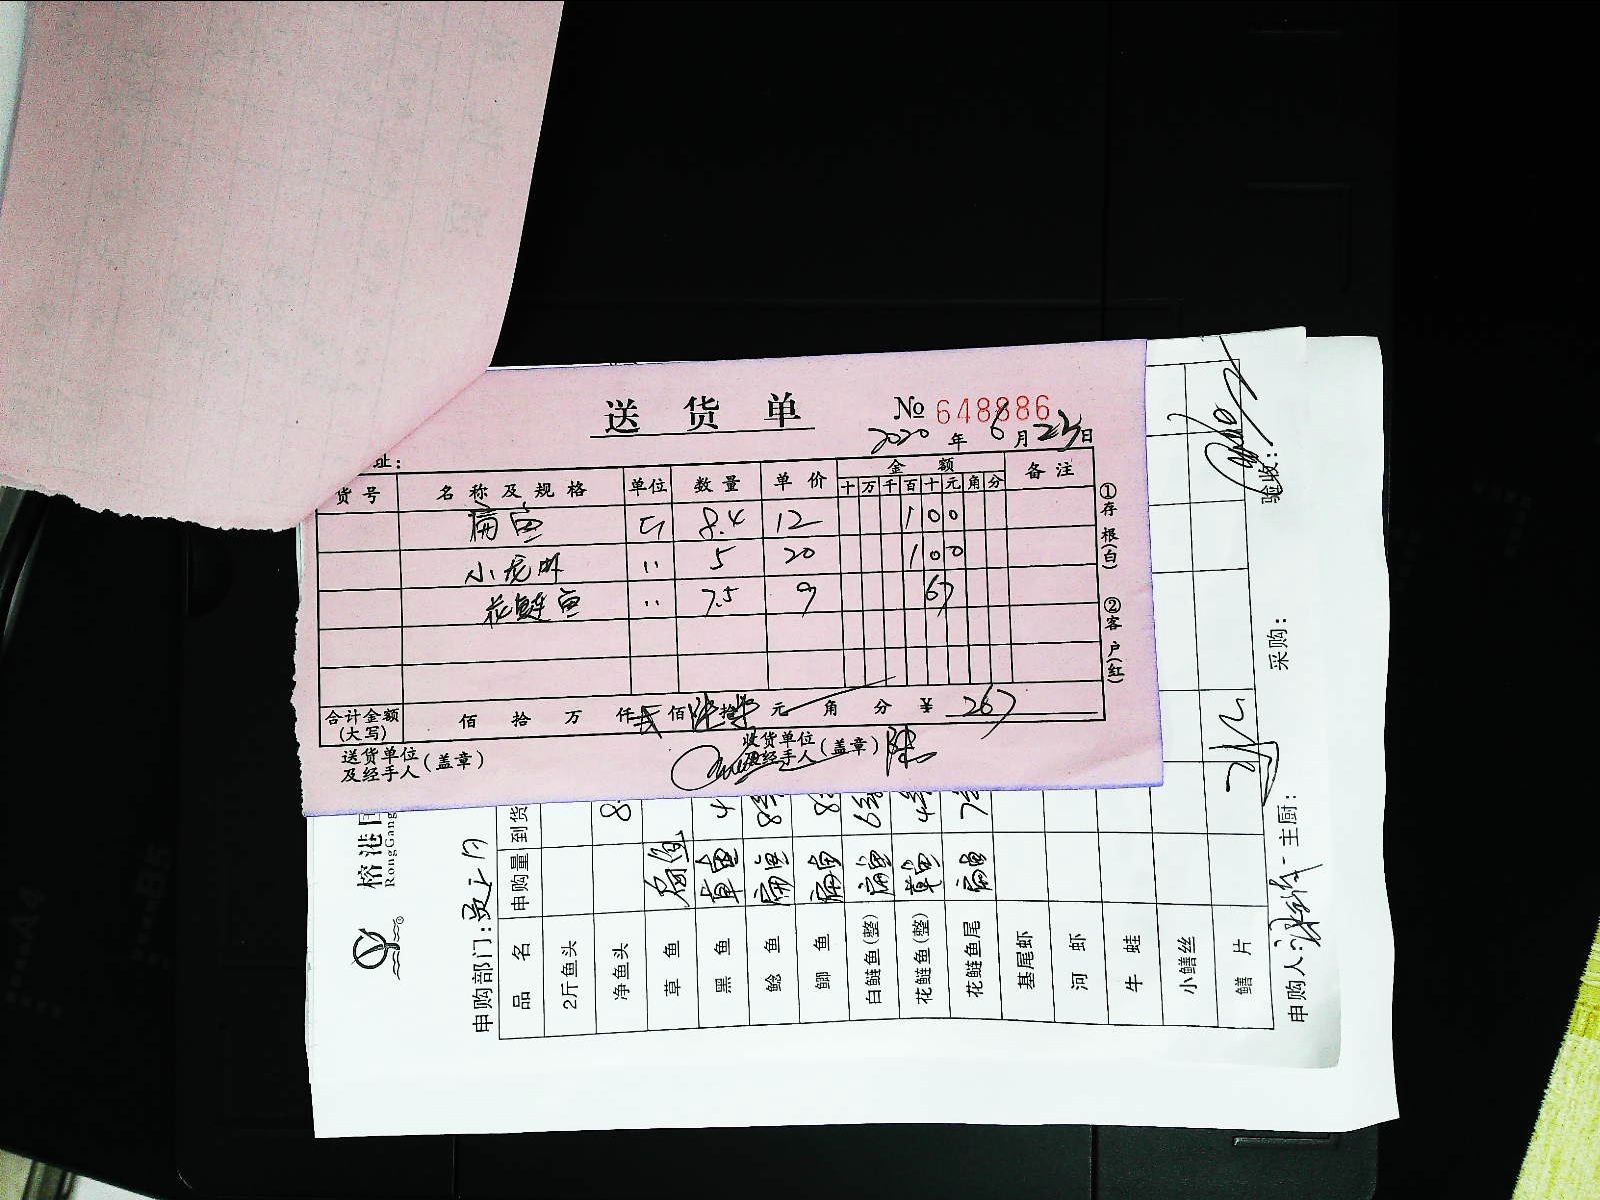 送货单
№ 648886
2020 年 6 月 23 日
址：
货号 名称及规格 单位 数量 单价 金额 备注
十 万 千 百 十 元 角 分
扁鱼 斤 8.4 12 100
小龙虾 〃 5 20 100
花鲢鱼 〃 7.5 9 67
合计金额(大写) 佰 拾 万 仟 弍 佰 陆 拾 柒 元 角 分 ¥ 267
送货单位及经手人(盖章) 收货单位及经手人(盖章) 陆
①存根(白) ②客户(红)
榕港
RongGang
申购部门：
品名 申购量 到货
2斤鱼头
净鱼头 8
草鱼
黑鱼 草鱼 4
鲶鱼 扁鱼
鲫鱼 扁鱼 8
白鲢鱼(整) 扁鱼
花鲢鱼(整) 草鱼
花鲢鱼尾 扁鱼
基尾虾
河虾
牛蛙
小鳝丝
鳝片
申购人： 主厨： 采购： 验收：